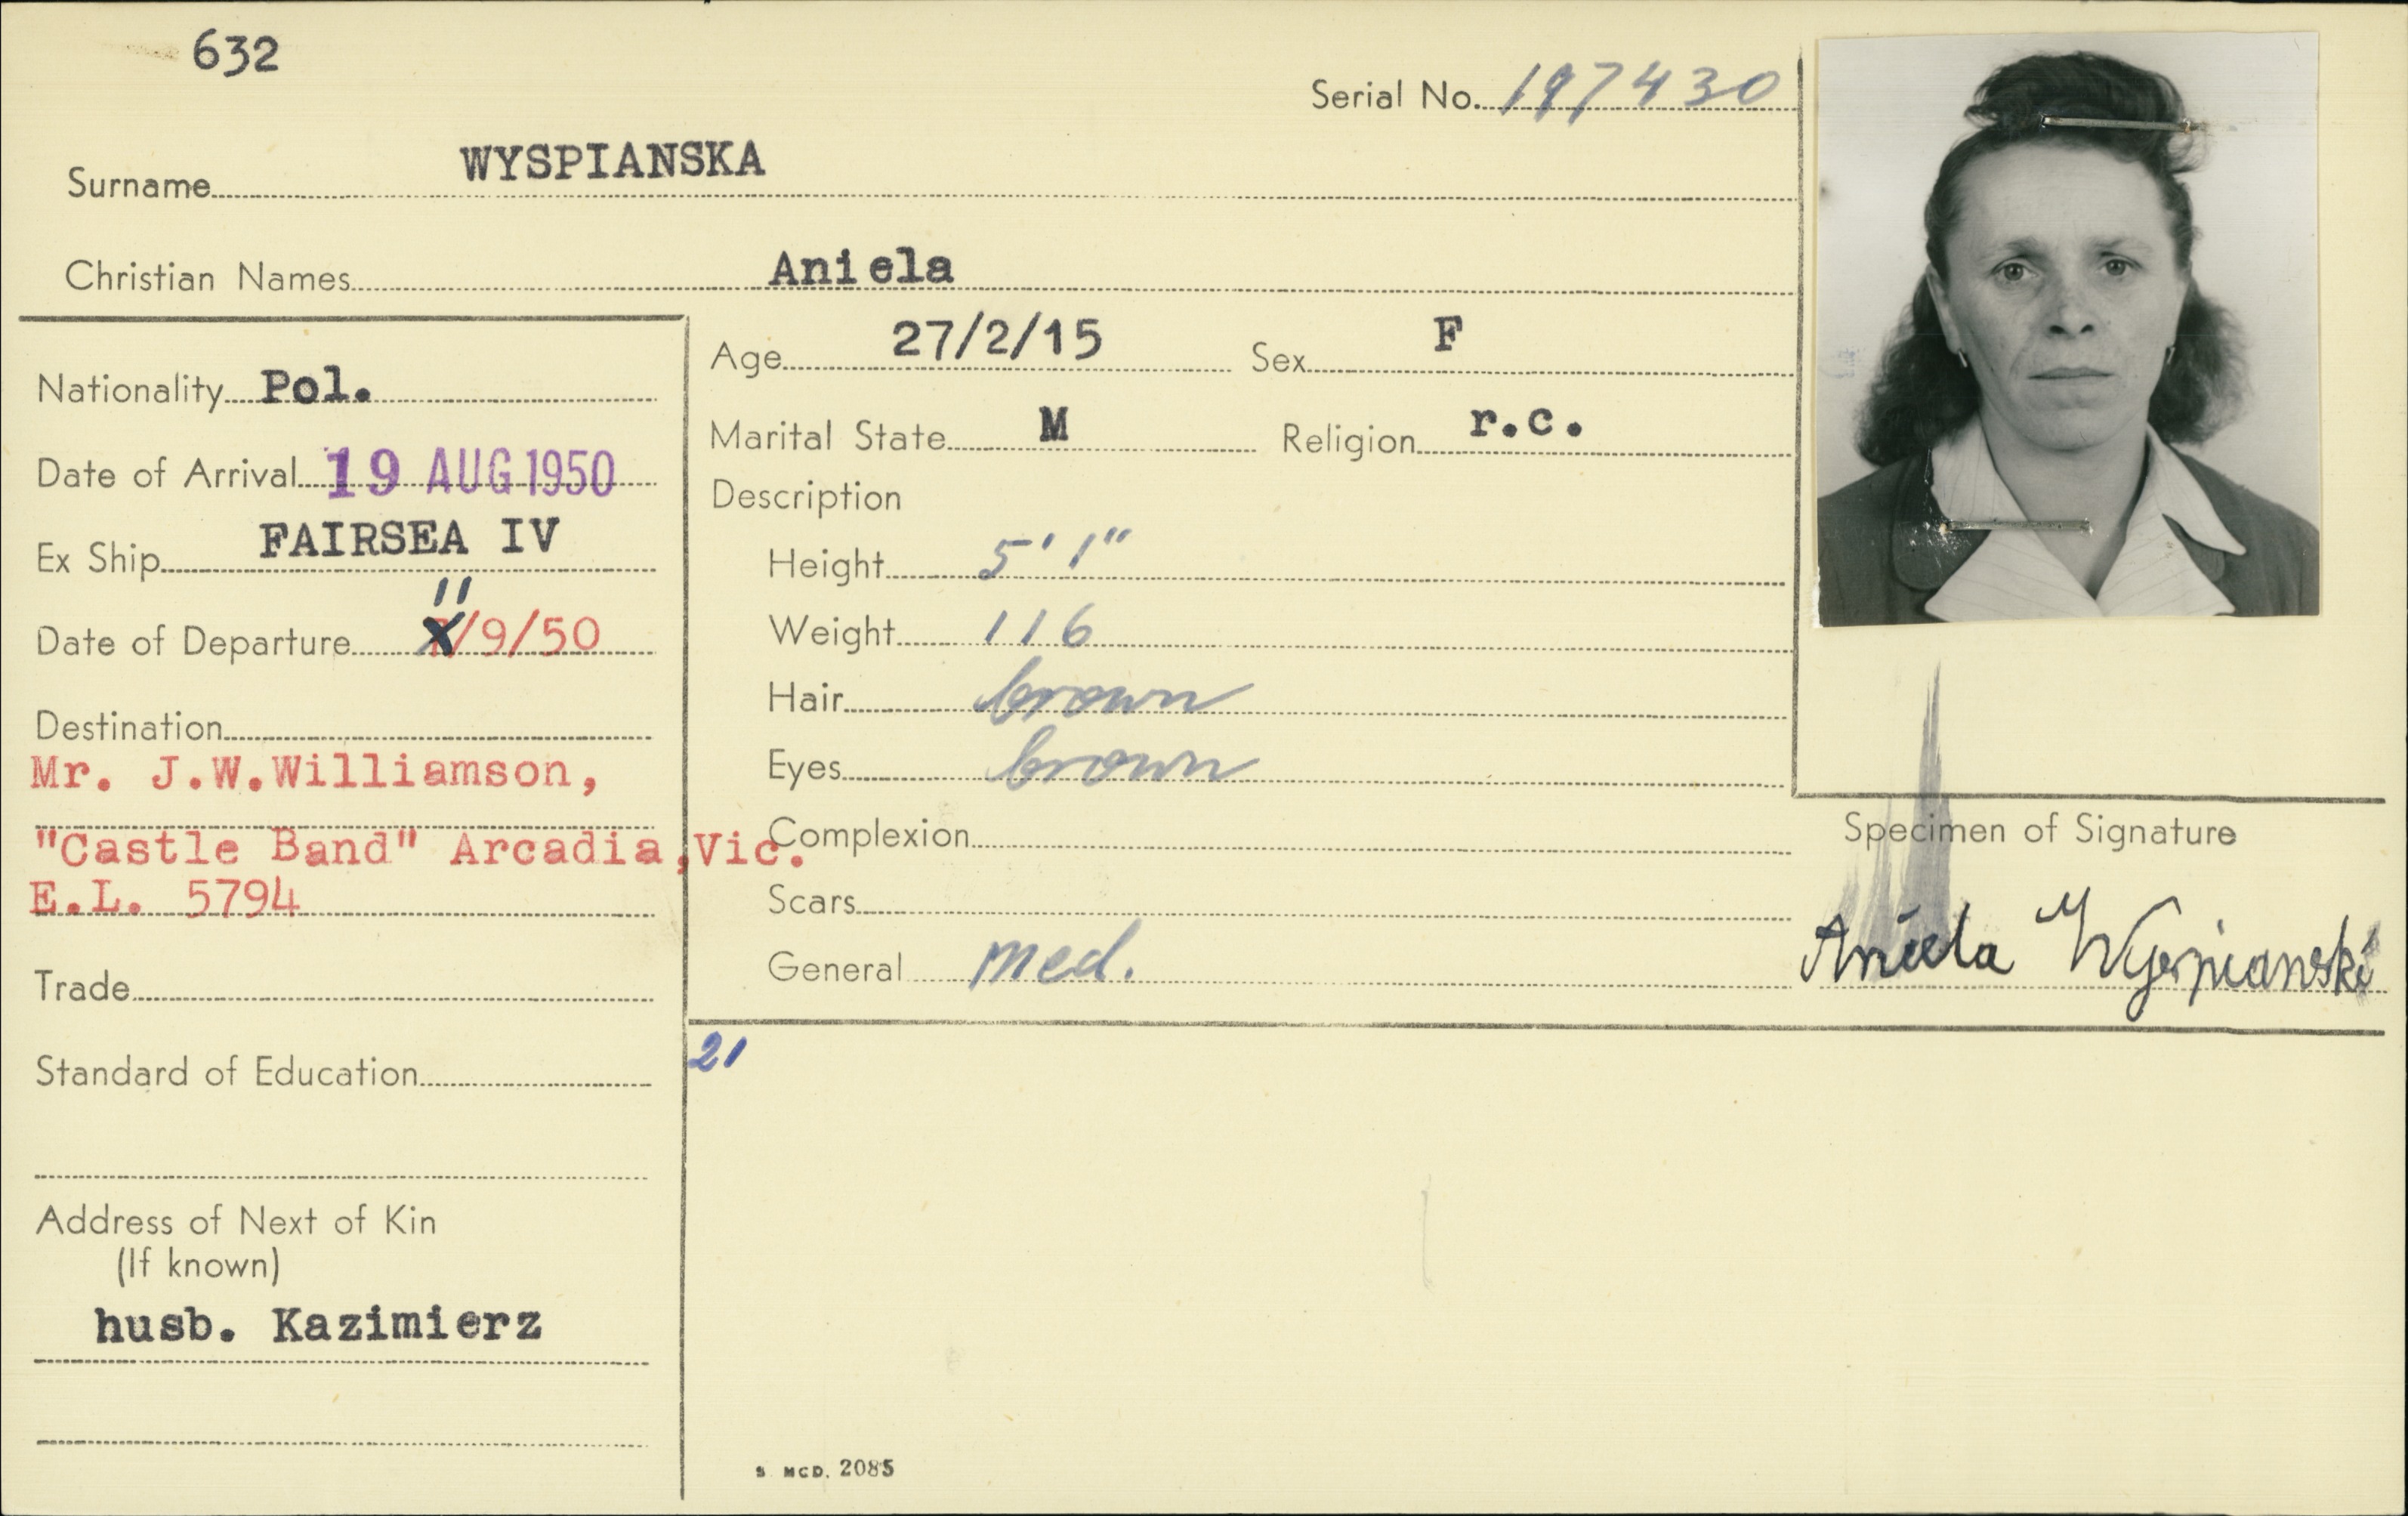 632
Serial No. 197430
Surname WYSPIANSKA
Christian Names Aniela
Nationality Pol.
Date of Arrival 19 AUG 1950
Ex Ship FAIRSEA IV
11
Date of Departure /9/50
Destination
Mr. J.W.Williamson,
"Castle Band" Arcadia,Vic.
E.L. 5794
Trade
Standard of Education
Address of Next of Kin
(If known)
husb. Kazimierz
Age 27/2/15 Sex F
Marital State M Religion r.c.
Description
Height 5' 1"
Weight 116
Hair brown
Eyes brown
Complexion
Scars
General med.
Specimen of Signature
Aniela Wyspianski
21
S MCD. 2085